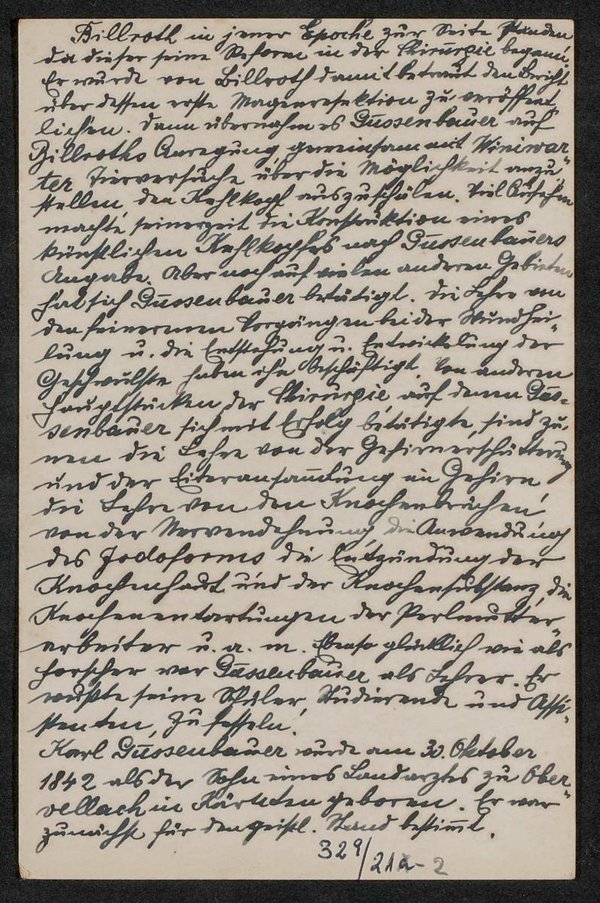 Billroth in jener Epoche zur Seite standen
da dieser seine Reform in der Chirurgie begann.
Er wurde von Billroth damit betraut den Bericht
über dessen erste Magenresektion zu veröffent-
lichen. Dann übernahm es Gussenbauer auf
Billroths Anregung gemeinsam mit Winiwar-
ter Tierversuche über die Möglichkeit anzu-
stellen den Kehlkopf auszuschälen. Viel Aufsehen
machte seinerzeit die Konstruktion eines
künstlichen Kehlkopfes nach Gussenbauers
Angabe. Aber noch auf vielen anderen Gebieten
hat sich Gussenbauer betätigt. Die Lehre von
den feineren Vorgängen bei der Wundhei-
lung u. die Entstehung u. Entwickelung der
Geschwülste haben ihn beschäftigt. Von anderen
Hauptstücken der Chirurgie auf denen Gus-
senbauer sich mit Erfolg betätigte, sind zu
nennen die Lehre von der Gehirnerschütterung
und der Eiteransammlung im Gehirn
die Lehre von den Knochenbrüchen,
von der Nervendehnung die Anwendung
des Jodoforms die Entzündung der
Knochenhaut und der Knochensubstanz, die
Knochenentartungen der Perlmutter
arbeiter u. a. m. Ebenso glücklich wie als
Forscher war Gussenbauer als Lehrer. Er
wußte seine Schüler, Studierende und Assi-
stenten, zu fesseln.
Karl Gussenbauer wurde am 30. Oktober
1842 als der Sohn eines Landarztes zu Ober-
vellach in Kärnten geboren. Er war
zunächst für den geistl. Stand bestimmt.
329/21a-2